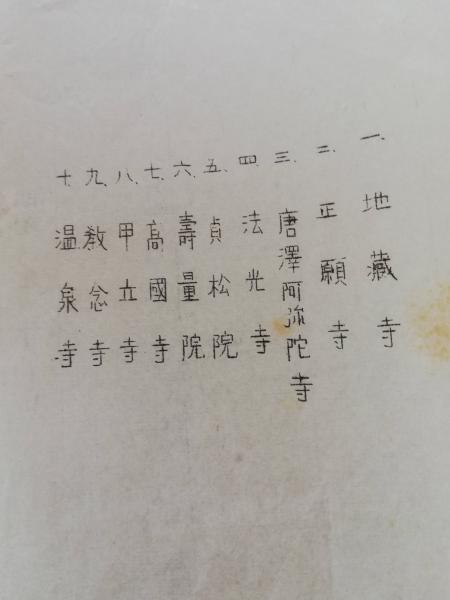 一、地藏寺
二、正願寺
三、唐澤阿弥陀寺
四、法光寺
五、貞松院
六、壽量院
七、高國寺
八、甲立寺
九、教念寺
十、温泉寺